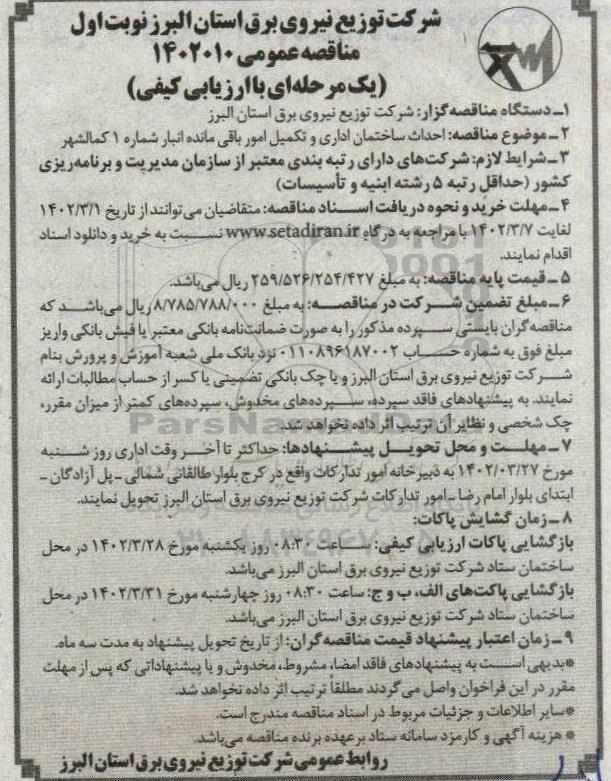 شرکت توزیع نیروی برق استان البرز نوبت اول
مناقصه عمومی ۱۴۰۲۰۱۰
(یک مرحله‌ای با ارزیابی کیفی)
۱ـ دستگاه مناقصه‌گزار: شرکت توزیع نیروی برق استان البرز
۲ـ موضوع مناقصه: احداث ساختمان اداری و تکمیل امور باقی مانده انبار شماره ۱ کمالشهر
۳ـ شرایط لازم: شرکت‌های دارای رتبه بندی معتبر از سازمان مدیریت و برنامه‌ریزی
کشور (حداقل رتبه ۵ رشته ابنیه و تأسیسات)
۴ـ مهلت خرید و نحوه دریافت اسناد مناقصه: متقاضیان می‌توانند از تاریخ ۱۴۰۲/۳/۱
لغایت ۱۴۰۲/۳/۷ با مراجعه به درگاه www.setadiran.ir نسبت به خرید و دانلود اسناد
اقدام نمایند.
۵ـ قیمت پایه مناقصه: به مبلغ ۲۵۹/۵۲۶/۲۵۴/۴۲۷ ریال می‌باشد.
۶ـ مبلغ تضمین شرکت در مناقصه: به مبلغ ۸/۷۸۵/۷۸۸/۰۰۰ ریال می‌باشد که
مناقصه‌گران بایستی سپرده مذکور را به صورت ضمانت‌نامه بانکی معتبر یا فیش بانکی واریز
مبلغ فوق به شماره حساب ۰۱۱۰۸۹۶۱۸۷۰۰۲ نزد بانک ملی شعبه آموزش و پرورش بنام
شرکت توزیع نیروی برق استان البرز و یا چک بانکی تضمینی یا کسر از حساب مطالبات ارائه
نمایند. به پیشنهادهای فاقد سپرده، سپرده‌های مخدوش، سپرده‌های کمتر از میزان مقرر،
چک شخصی و نظایر آن ترتیب اثر داده نخواهد شد.
۷ـ مهلت و محل تحویل پیشنهادها: حداکثر تا آخر وقت اداری روز شنبه
مورخ ۱۴۰۲/۰۳/۲۷ به دبیرخانه امور تدارکات واقع در کرج بلوار طالقانی شمالی ـ پل آزادگان ـ
ابتدای بلوار امام رضا ـ امور تدارکات شرکت توزیع نیروی برق استان البرز تحویل نمایند.
۸ـ زمان گشایش پاکات:
بازگشایی پاکات ارزیابی کیفی: ساعت ۰۸:۳۰ روز یکشنبه مورخ ۱۴۰۲/۳/۲۸ در محل
ساختمان ستاد شرکت توزیع نیروی برق استان البرز می‌باشد.
بازگشایی پاکت‌های الف، ب و ج: ساعت ۰۸:۳۰ روز چهارشنبه مورخ ۱۴۰۲/۳/۳۱ در محل
ساختمان ستاد شرکت توزیع نیروی برق استان البرز می‌باشد.
۹ـ زمان اعتبار پیشنهاد قیمت مناقصه‌گران: از تاریخ تحویل پیشنهاد به مدت سه ماه.
*بدیهی است به پیشنهادهای فاقد امضا، مشروط، مخدوش و یا پیشنهاداتی که پس از مهلت
مقرر در این فراخوان واصل می‌گردند مطلقاً ترتیب اثر داده نخواهد شد.
*سایر اطلاعات و جزئیات مربوط در اسناد مناقصه مندرج است.
* هزینه آگهی و کارمزد سامانه ستاد برعهده برنده مناقصه می‌باشد.
روابط عمومی شرکت توزیع نیروی برق استان البرز